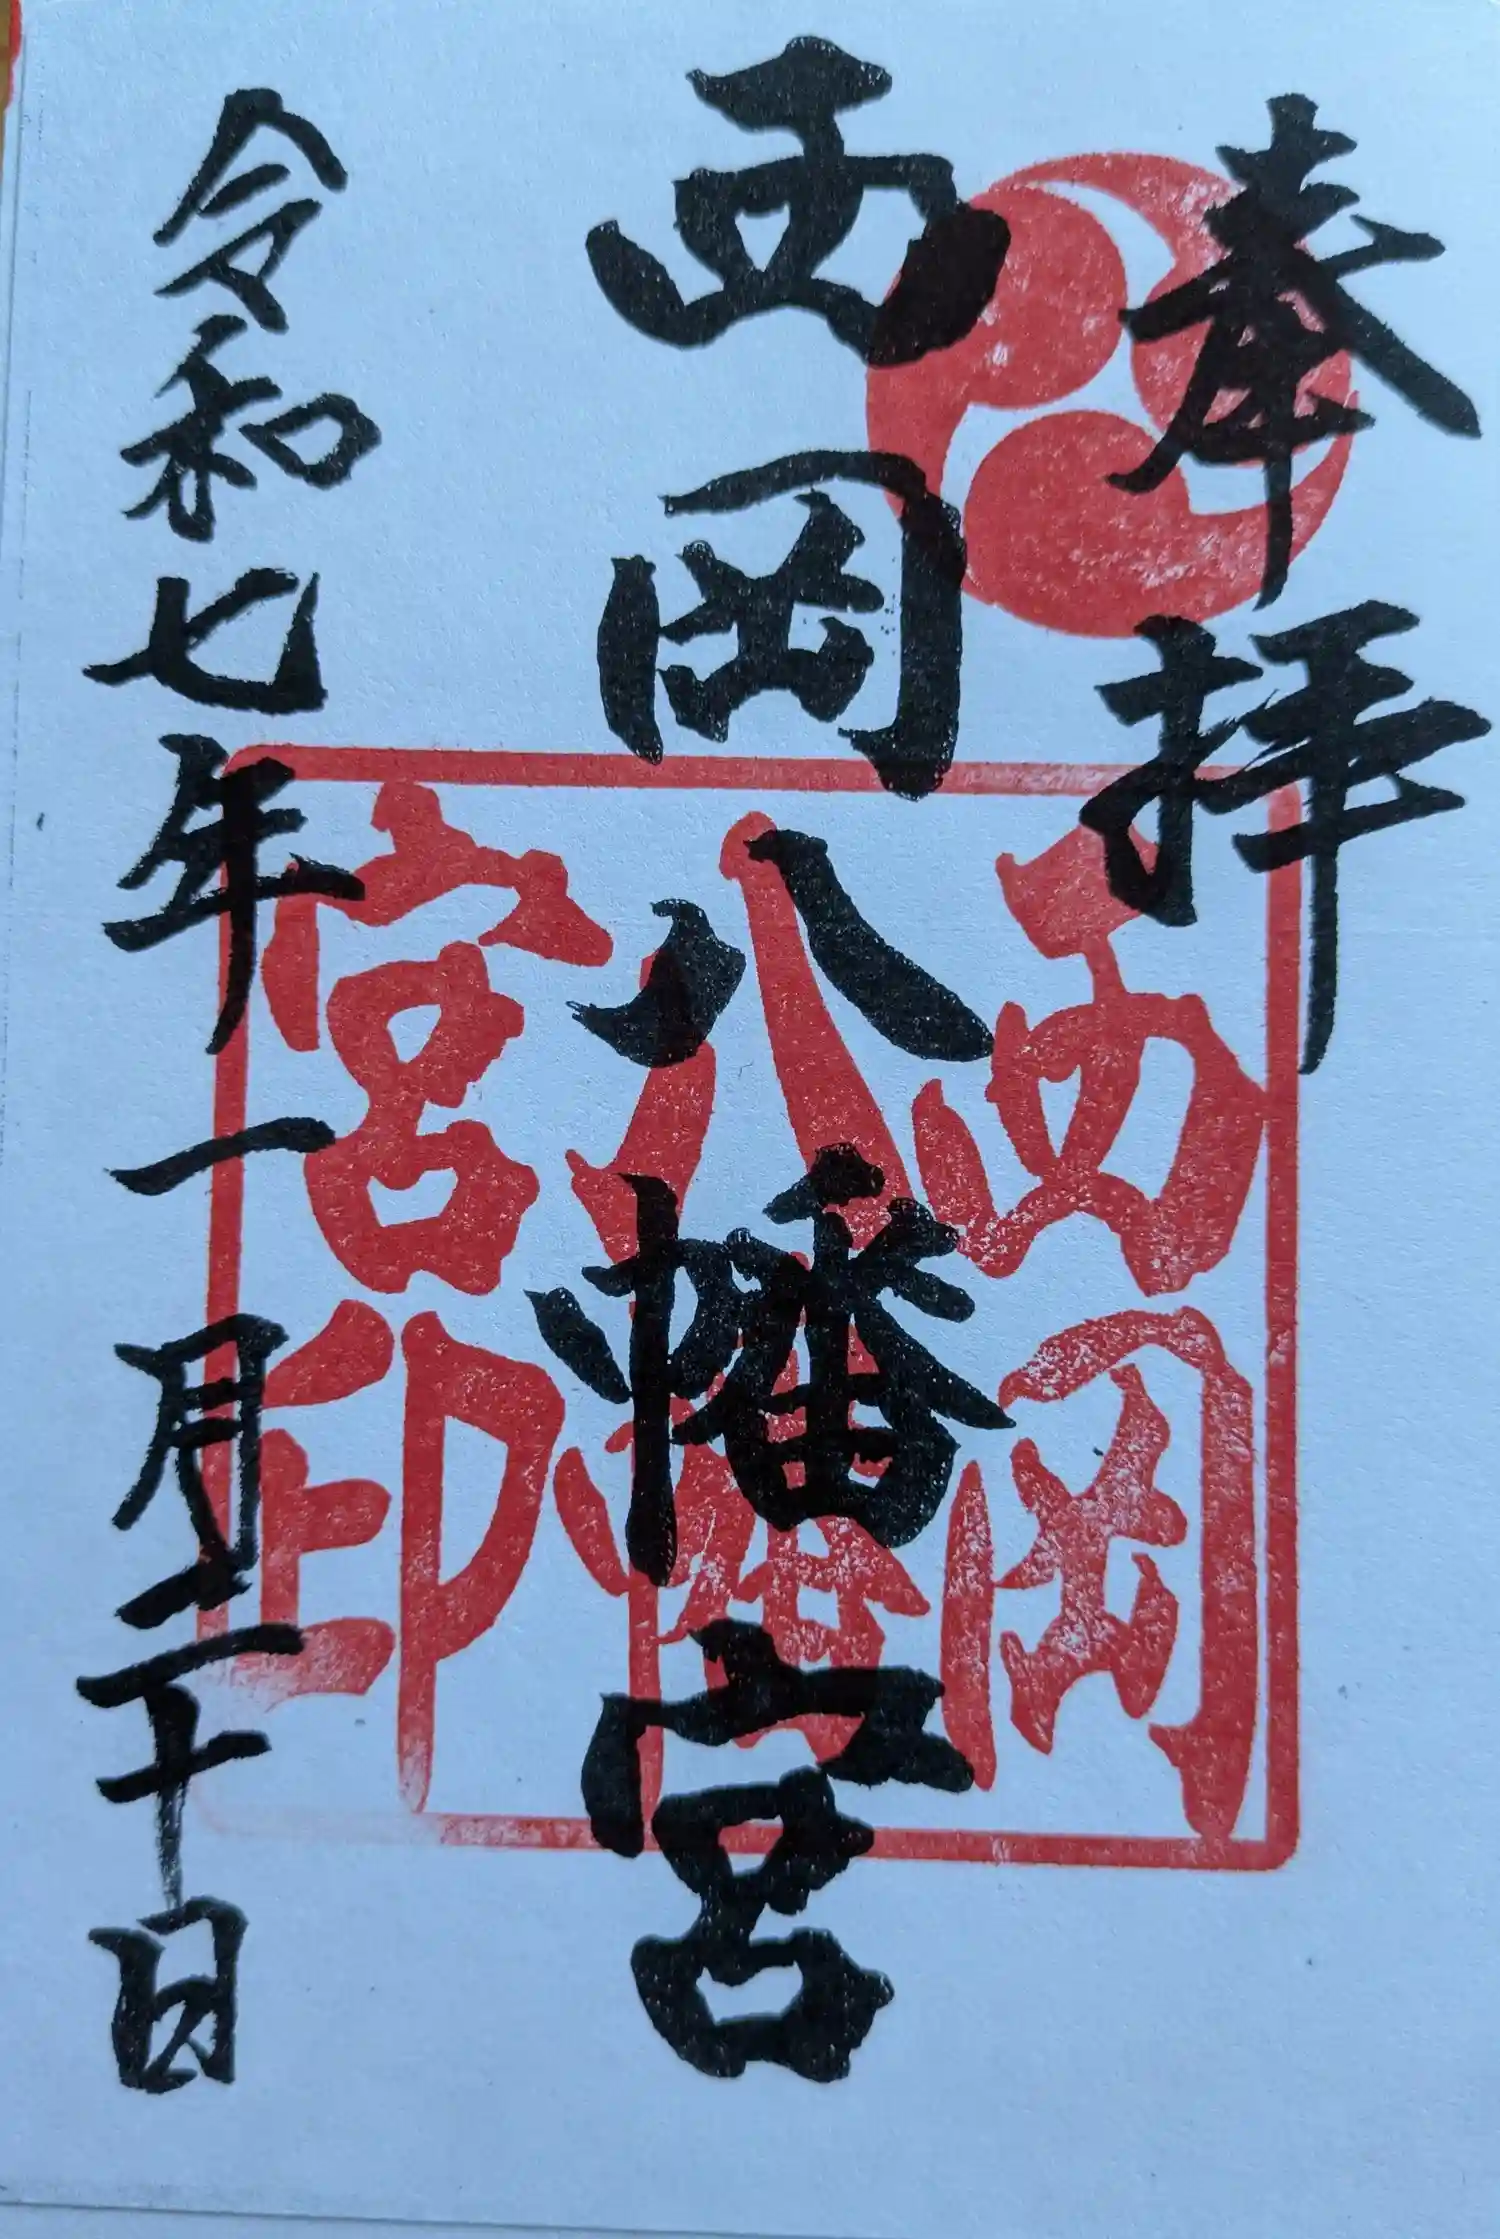 奉拝
西岡八幡宮
令和七年一月二十日
西岡
八幡
宮印